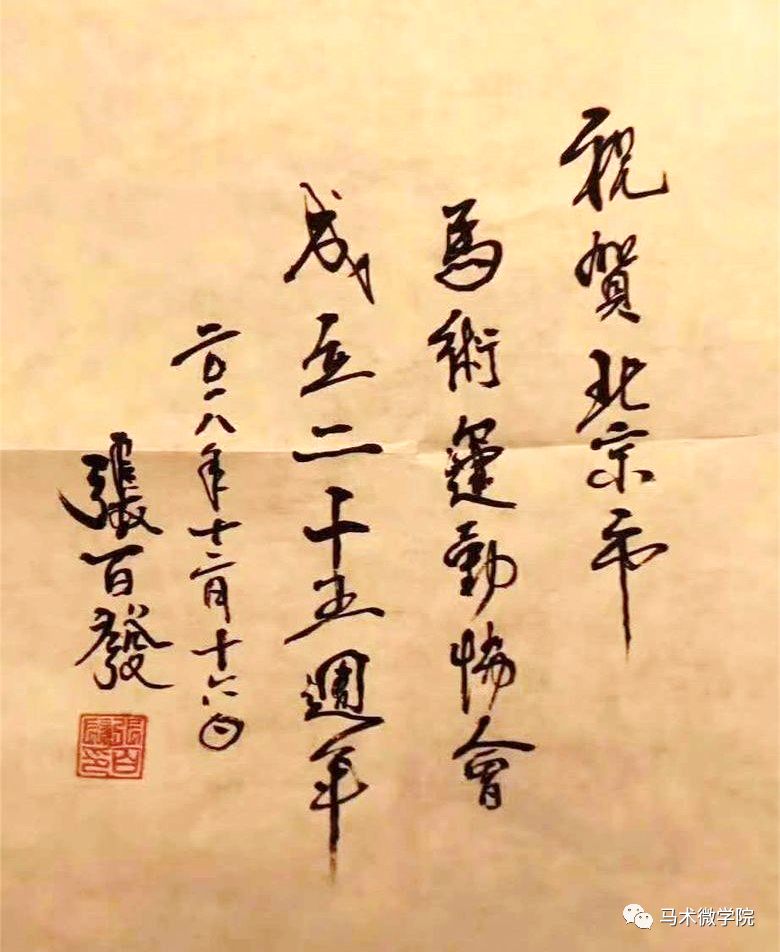 祝賀北京市
馬術運動協會
成立二十五週年
二〇一八年十二月十六日
張百發
張百發印
马术微学院